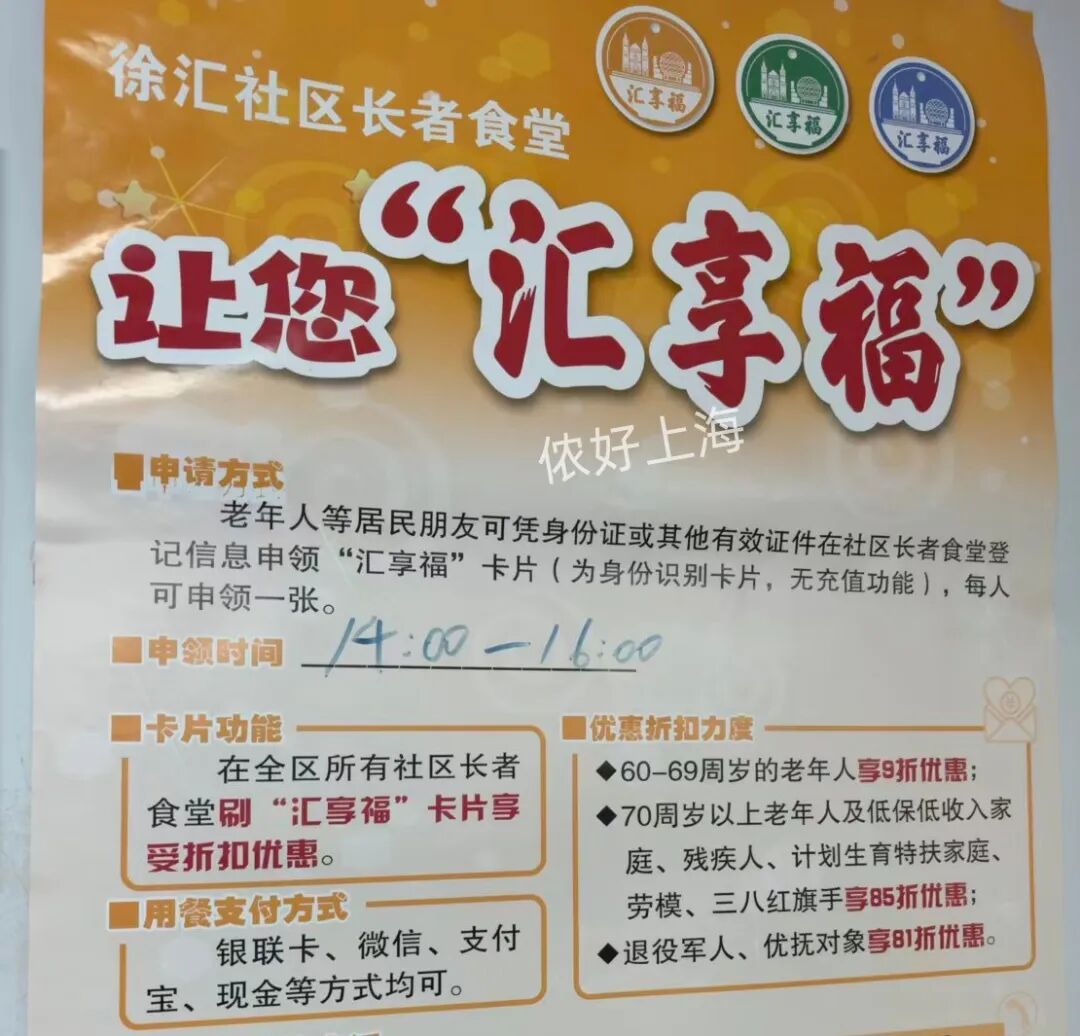 徐汇社区长者食堂
汇享福
汇享福
汇享福
让您“汇享福”
侬好上海
申请方式
老年人等居民朋友可凭身份证或其他有效证件在社区长者食堂登
记信息申领“汇享福”卡片(为身份识别卡片，无充值功能)，每人
可申领一张。
申领时间 14:00-16:00
卡片功能
在全区所有社区长者
食堂刷“汇享福”卡片享
受折扣优惠。
用餐支付方式
银联卡、微信、支付
宝、现金等方式均可。
优惠折扣力度
◆60-69周岁的老年人享9折优惠;
◆70周岁以上老年人及低保低收入家
庭、残疾人、计划生育特扶家庭、
劳模、三八红旗手享85折优惠;
◆退役军人、优抚对象享81折优惠。